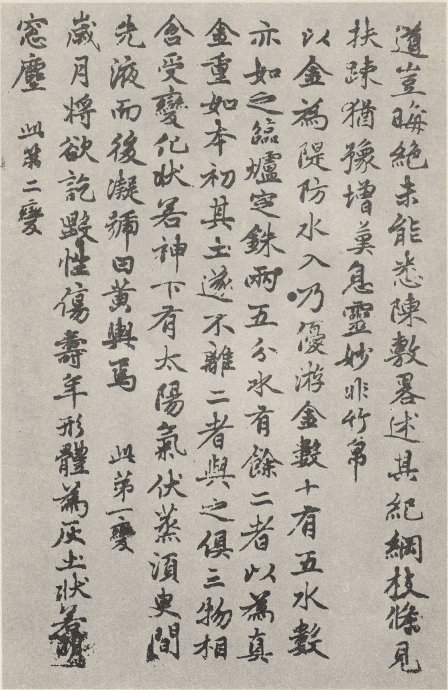 道豈晦絕未能悉陳敷畧述其紀綱枝條見
扶踈猶豫增靈妙非竹帛
以金為隄防水入乃優游金數十有五水數
亦如之臨爐定銖兩五分水有餘二者以為真
金重如本初其土遂不離二者與之俱三物相
含受變化狀若神下有太陽氣伏蒸須臾間
先液而後凝號曰黃輿焉 此第一變
歲月將欲訖毀性傷壽年形體為灰土狀若明
窓塵 此第二變